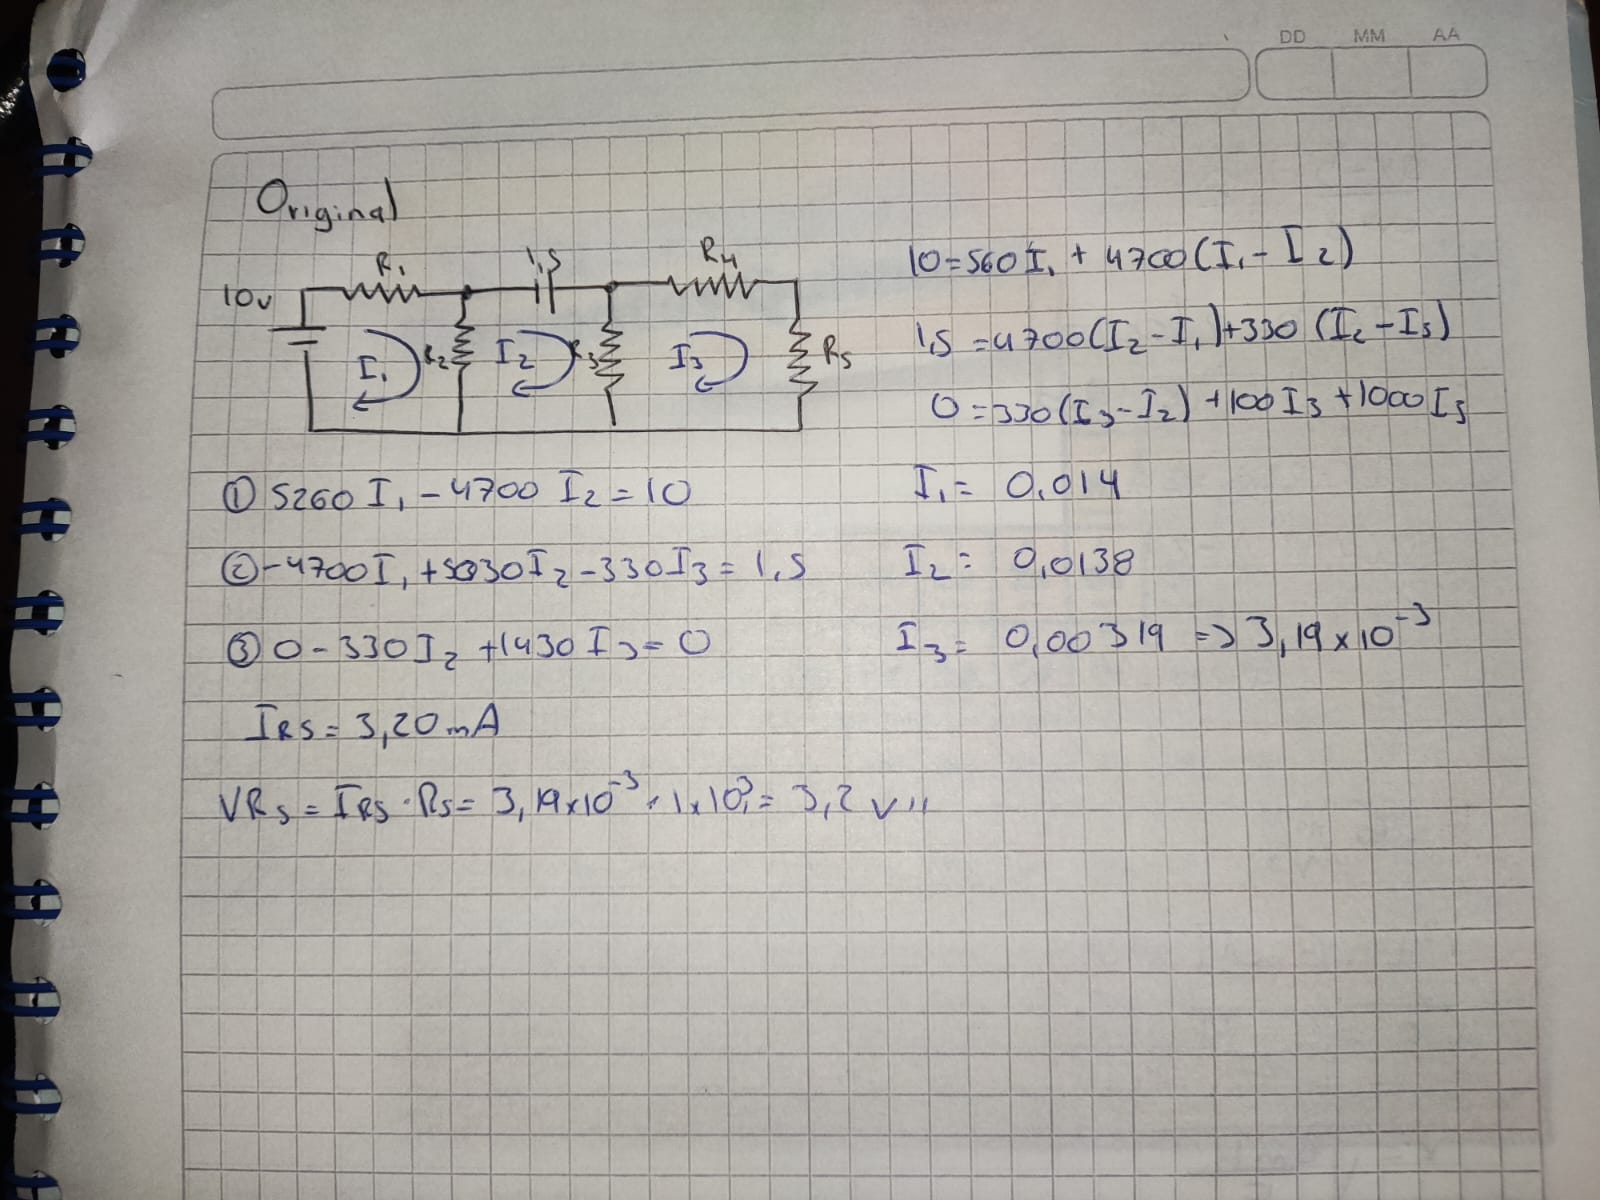 DD MM AA
Original
10v R₁ 1,5 R₄
I₁ R₂ I₂ R₃ I₃ R₅
10=560I₁ + 4700(I₁-I₂)
1,5=4700(I₂-I₁)+330(I₂-I₃)
0=330(I₃-I₂)+100I₃+1000I₃
① 5260I₁-4700I₂=10
I₁= 0,014
②-4700I₁+5030I₂-330I₃=1,5
I₂= 0,0138
③ 0-330I₂+1430I₃=0
I₃= 0,00319 => 3,19x10⁻³
IR5=3,20mA
VR₅=IR5·R5=3,19x10⁻³·1x10³=3,2v"